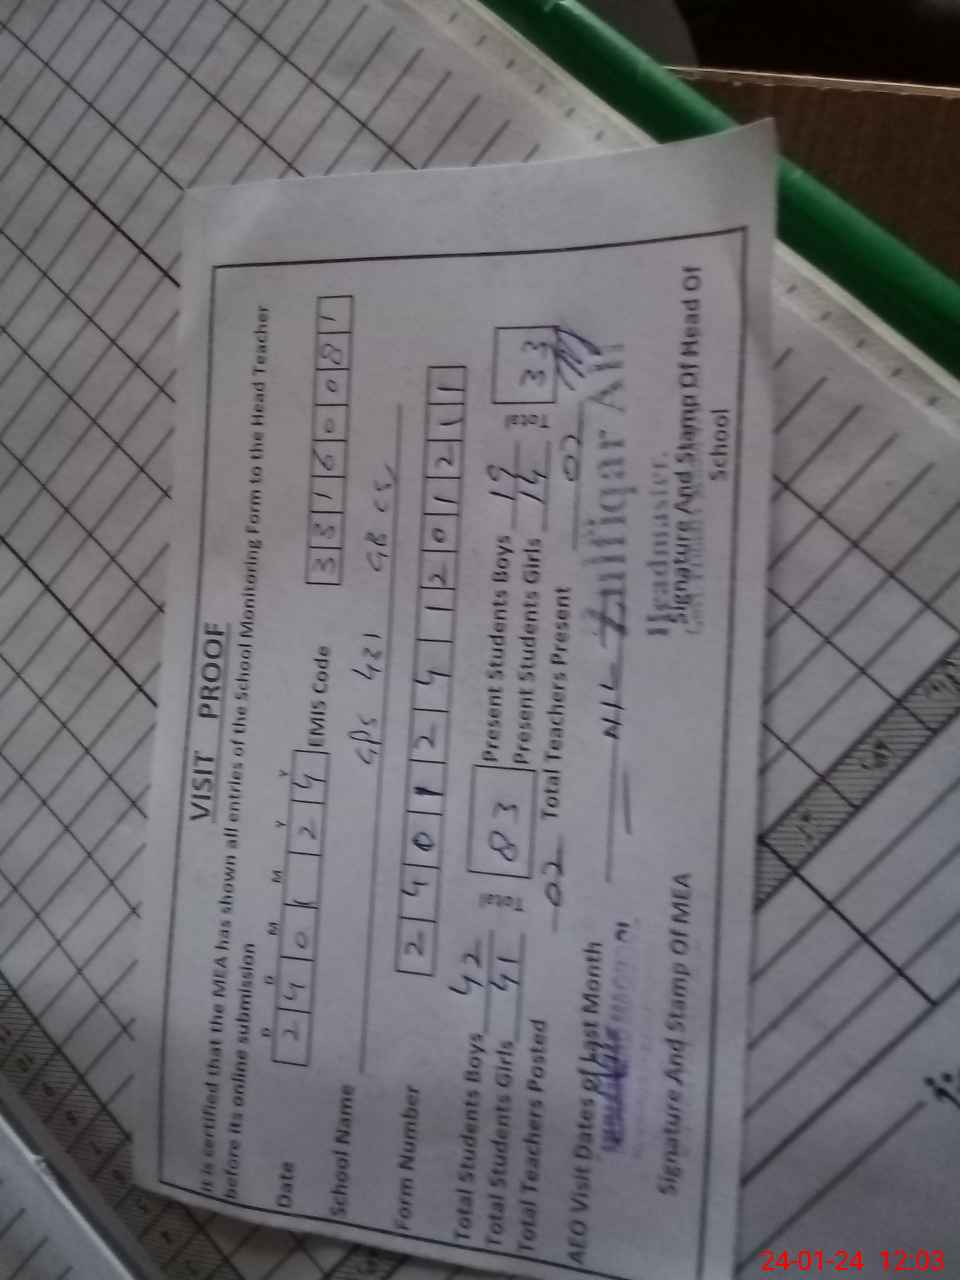 VISIT PROOF
It is certified that the MEA has shown all entries of the School Monitoring Form to the Head Teacher
before its online submission
D D M M Y Y
Date 2 4 0 1 2 4 EMIS Code 3 3 1 6 0 0 8 1
School Name GPS 421 GB
Form Number 2 4 0 1 2 4 1 2 0 1 2 1 1
Total Students Boys 42 Total 83 Present Students Boys 19 Total 33
Total Students Girls 41 Present Students Girls 14
Total Teachers Posted 02 Total Teachers Present 02
AEO Visit Dates of Last Month NIL
Zulfiqar Ali
Headmaster
Signature And Stamp Of MEA Signature And Stamp Of Head Of
School
24-01-24 12:03